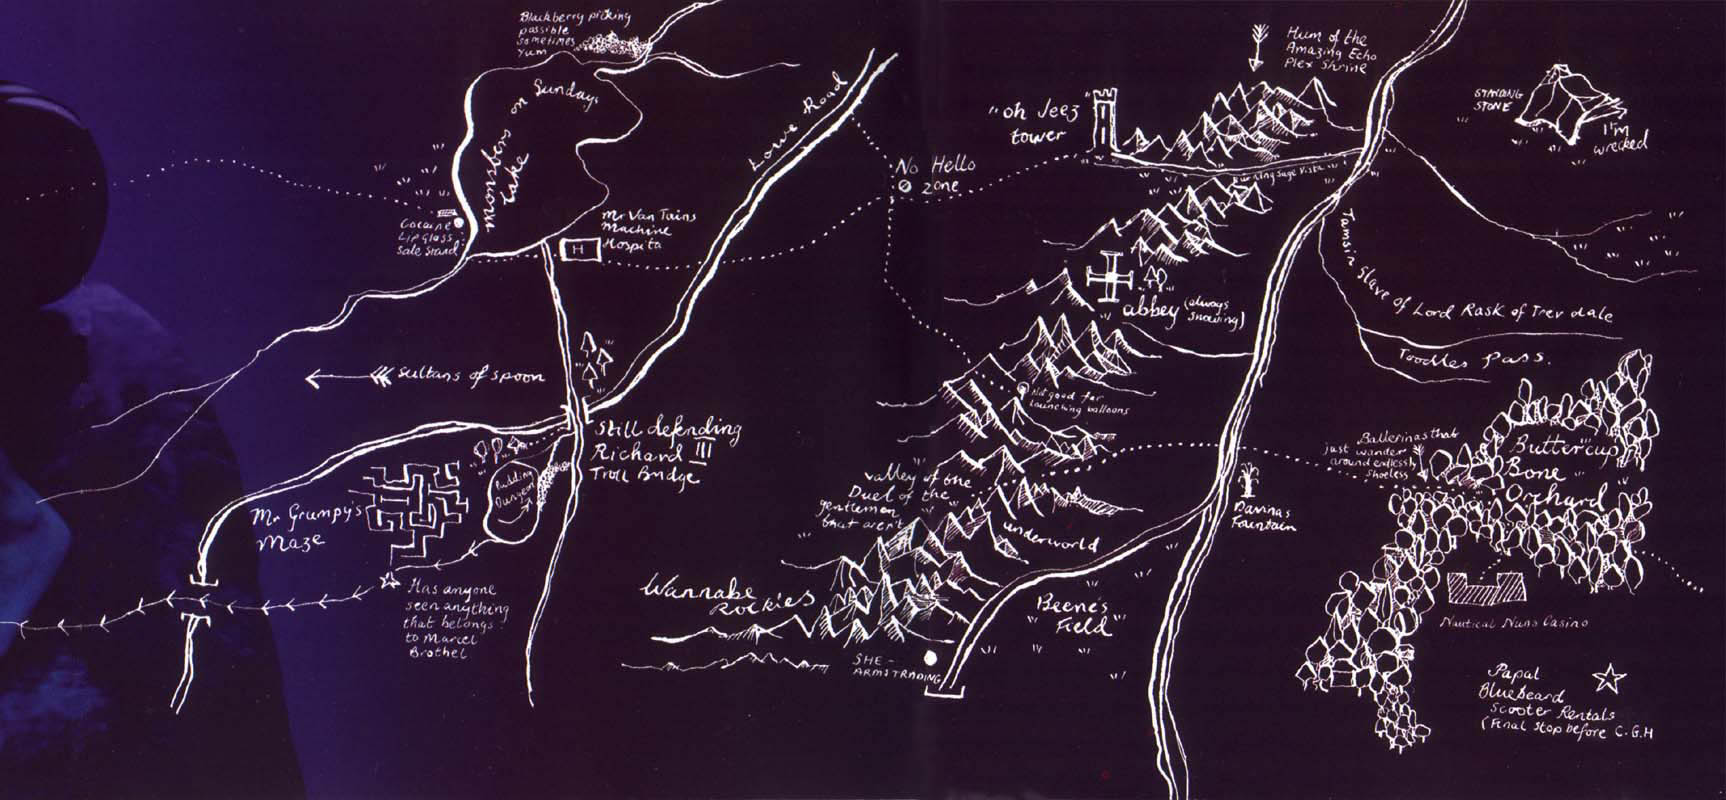 Blackberry picking
possible
sometimes
Yum
Monsters on Sundays
Lake
Cocaine
Lip Glass
Sale Stand
Mr Van Tains
Machine
Hospita
H
Lowe Road
No Hello
zone
"oh Jeez"
tower
Hum of the
Amazing Echo
Plex Shrine
STANDING
STONE
I'm
wrecked
Burning Sage Vista
abbey (always
snowing)
Tamsin Slave of Lord Rask of Trevdale
Toodles Pass.
Sultans of Spoon
Still defending
Richard III
Troll Bridge
Pudding
Dungeon
Mr Grumpy's
Maze
Has anyone
seen anything
that belongs
to Marcel
Brothel
Not good for
Launching balloons
valley of one
Duel of the
gentlemen
that aren't
underworld
Wannabe
Rockies
SHE -
ARMSTRADING
"Beene's
Field"
Davinas
Fountain
Ballerinas that
just wander
around endlessly
Shoeless
Buttercup
Bone
Orchard
Nautical Nuns Casino
Papal
Bluebeard
Scooter Rentals
(Final Stop before C.G.H